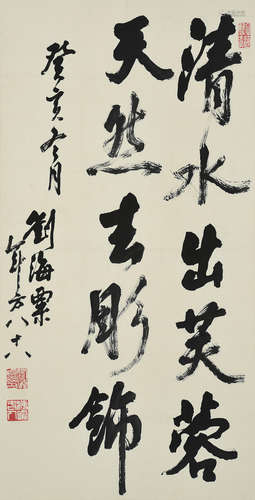 清水出芙蓉
天然去彫飾
癸亥冬月
劉海粟
年方八十八